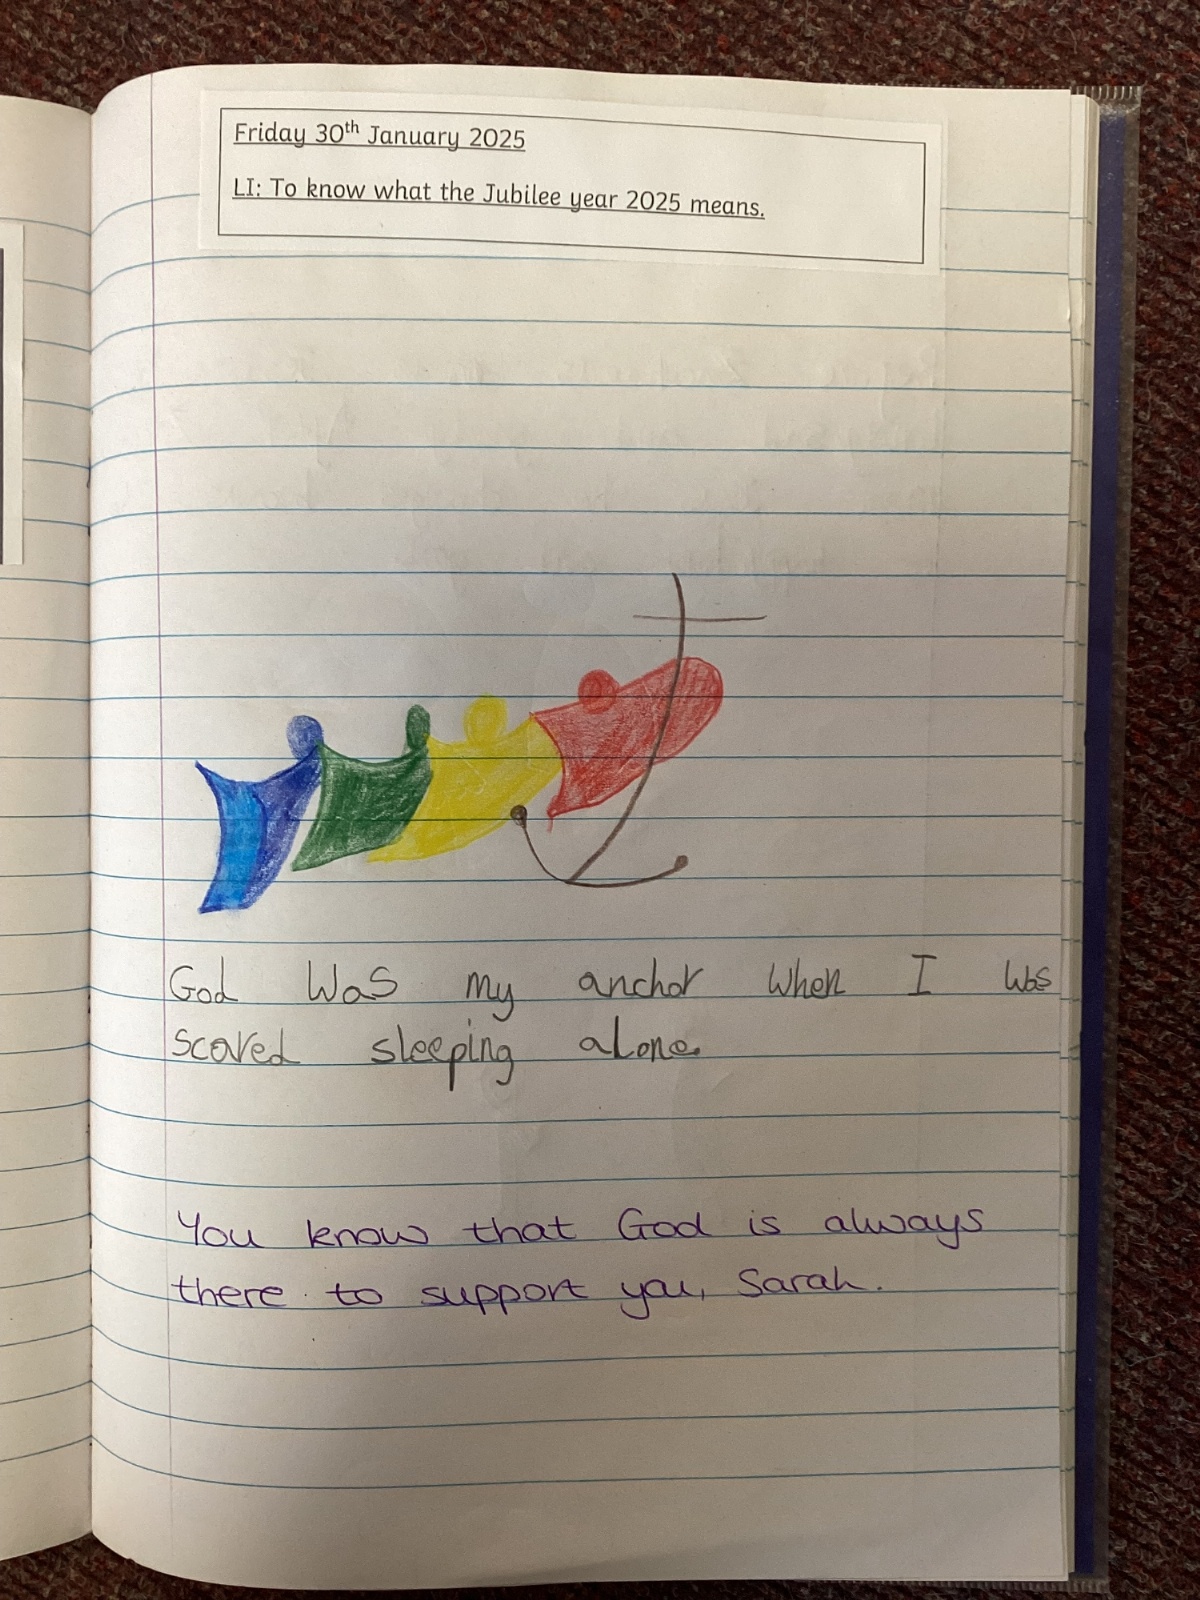 Friday 30th January 2025
LI: To know what the Jubilee year 2025 means.
God was my anchor when I was
scared sleeping alone.
You know that God is always
there to support you, Sarah.